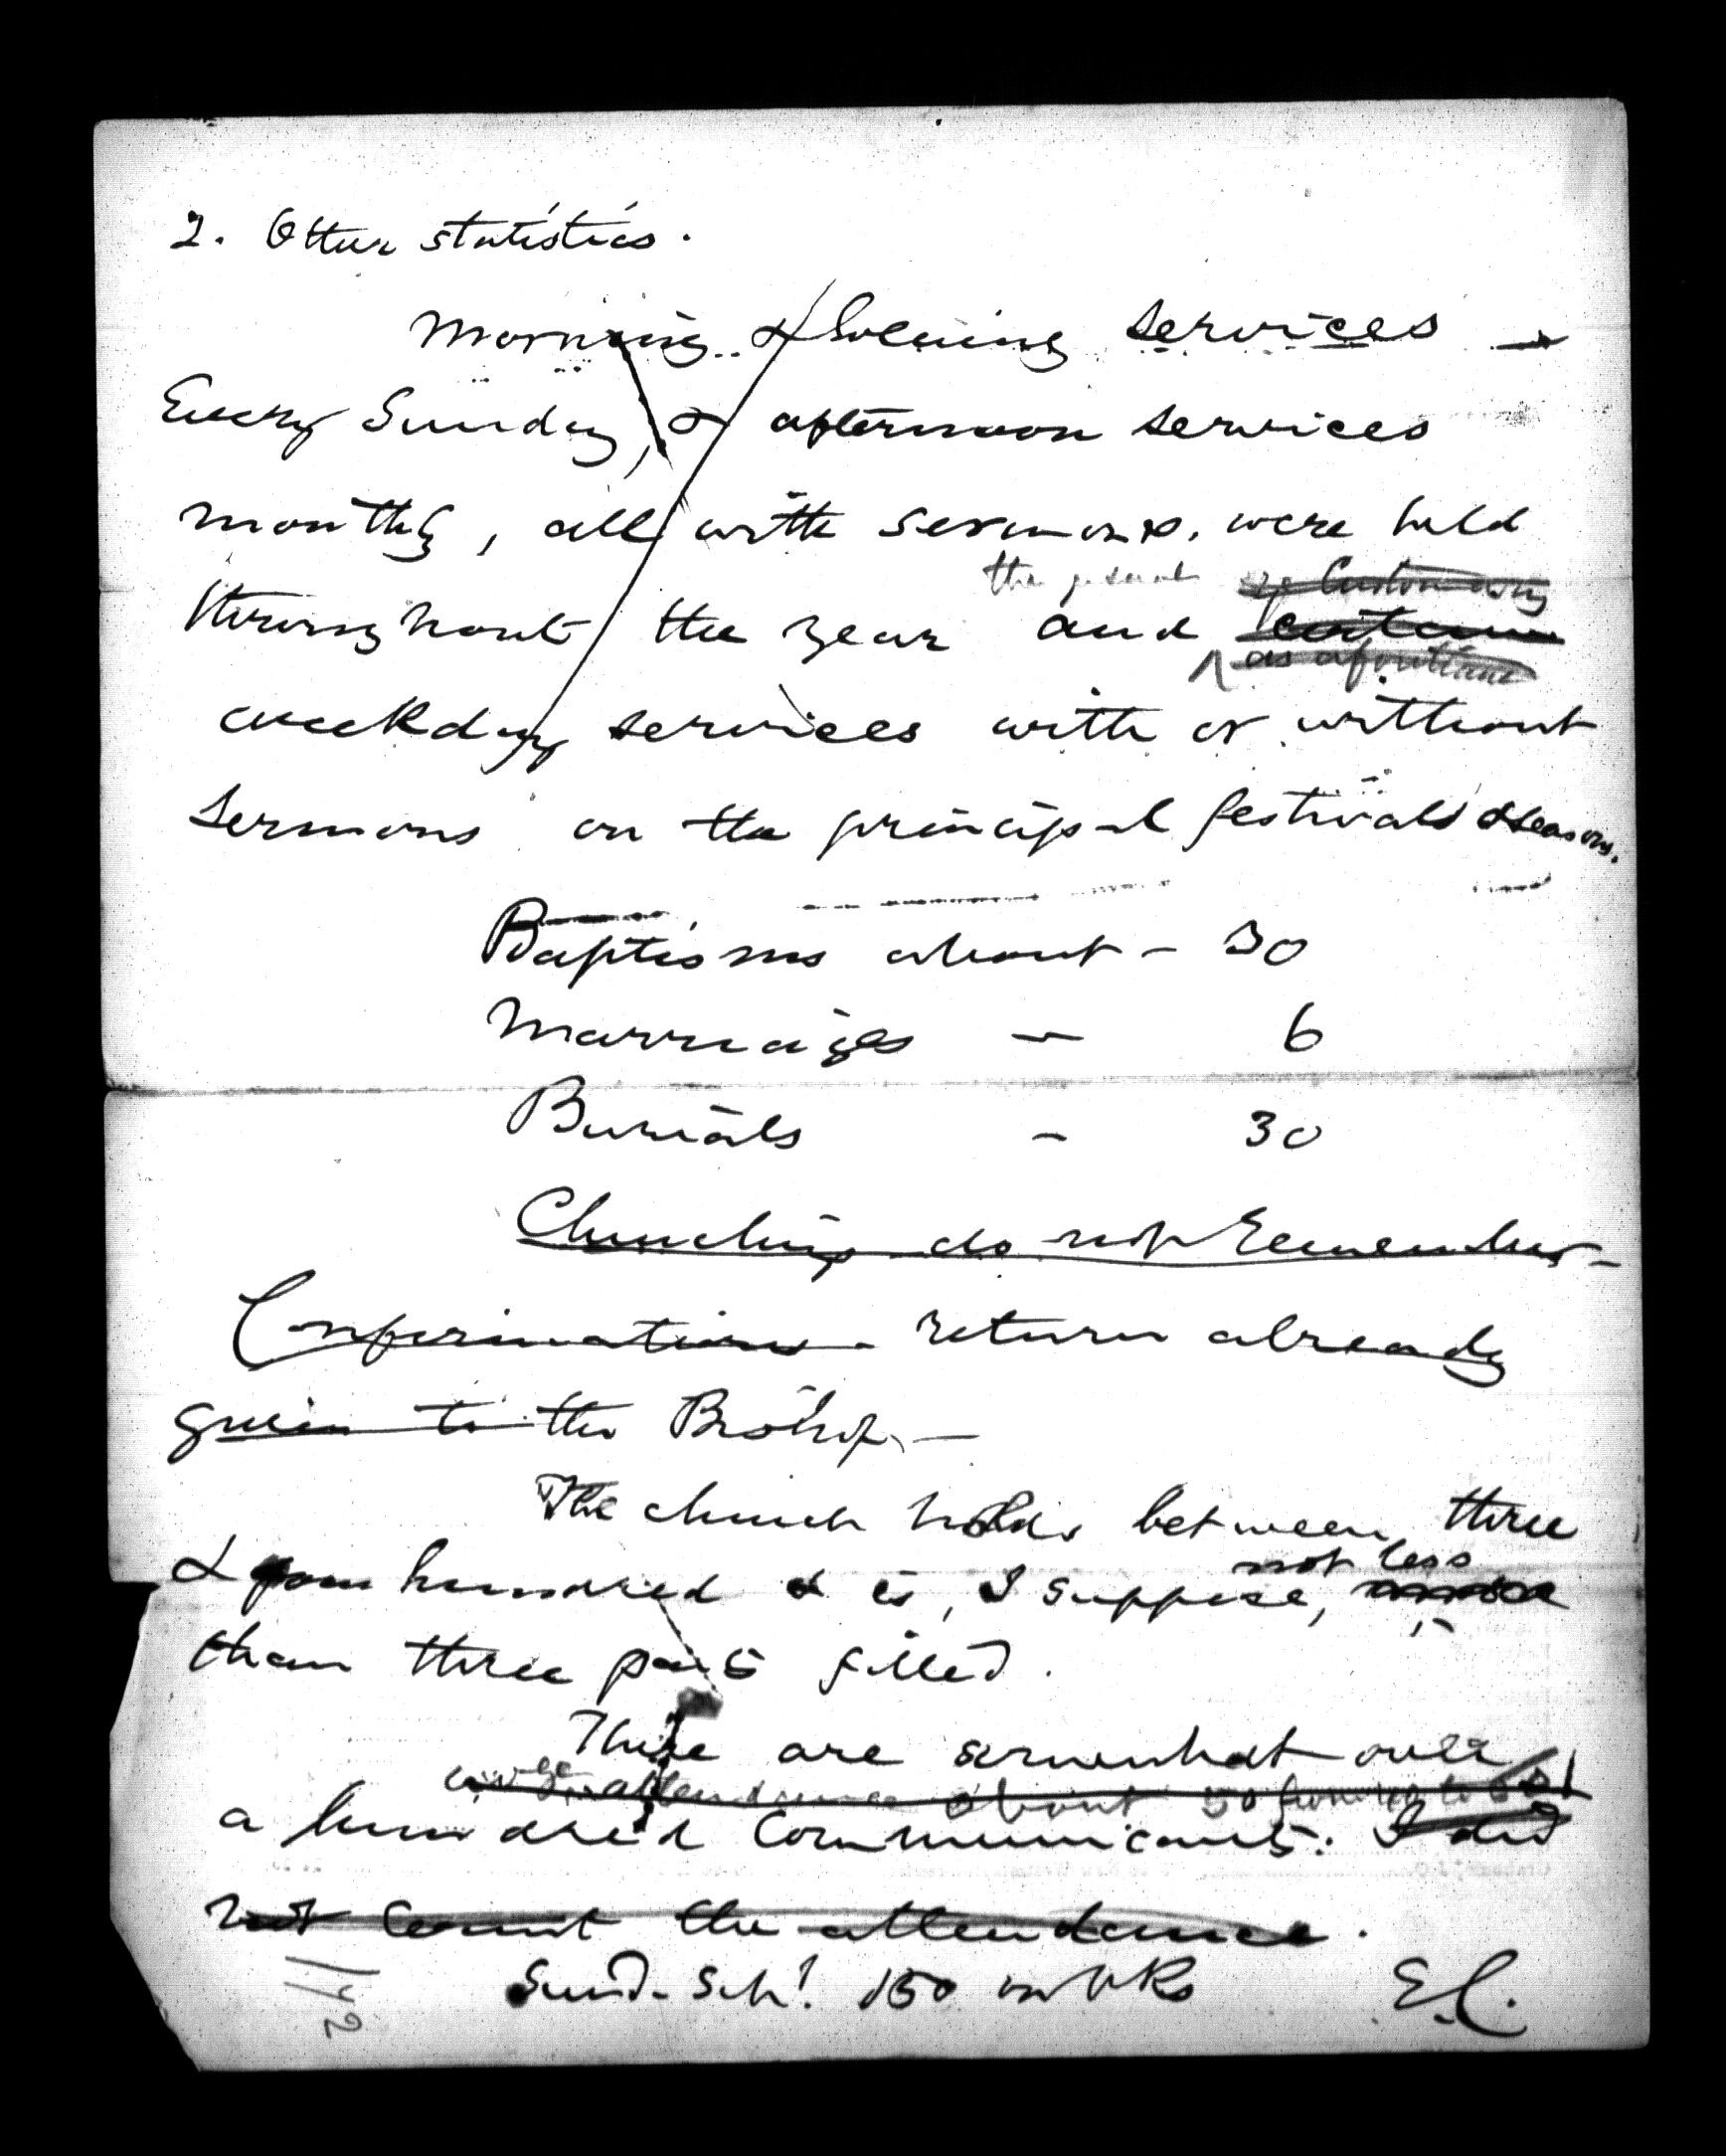 2. Other statistics.
Morning & Evening services —
Every Sunday, & afternoon services
monthly, all with sermons, were held
the usual customary
throughout the year and certain
as aforetime
weekday services with or without
sermons on the principal festivals & seasons.
Baptisms about - 30
Marriages — 6
Burials - 30
Churchings do not remember —
Confirmations - return already
given to the Bishop. —
The church holds between three
not less
& four hundred & is, I suppose,
than three parts filled.
There are somewhat over
average attendance about 50 from 40 to 60
a hundred Communicants. I did
not count the attendance.
Sund. Sch! 150 on bks E.C.